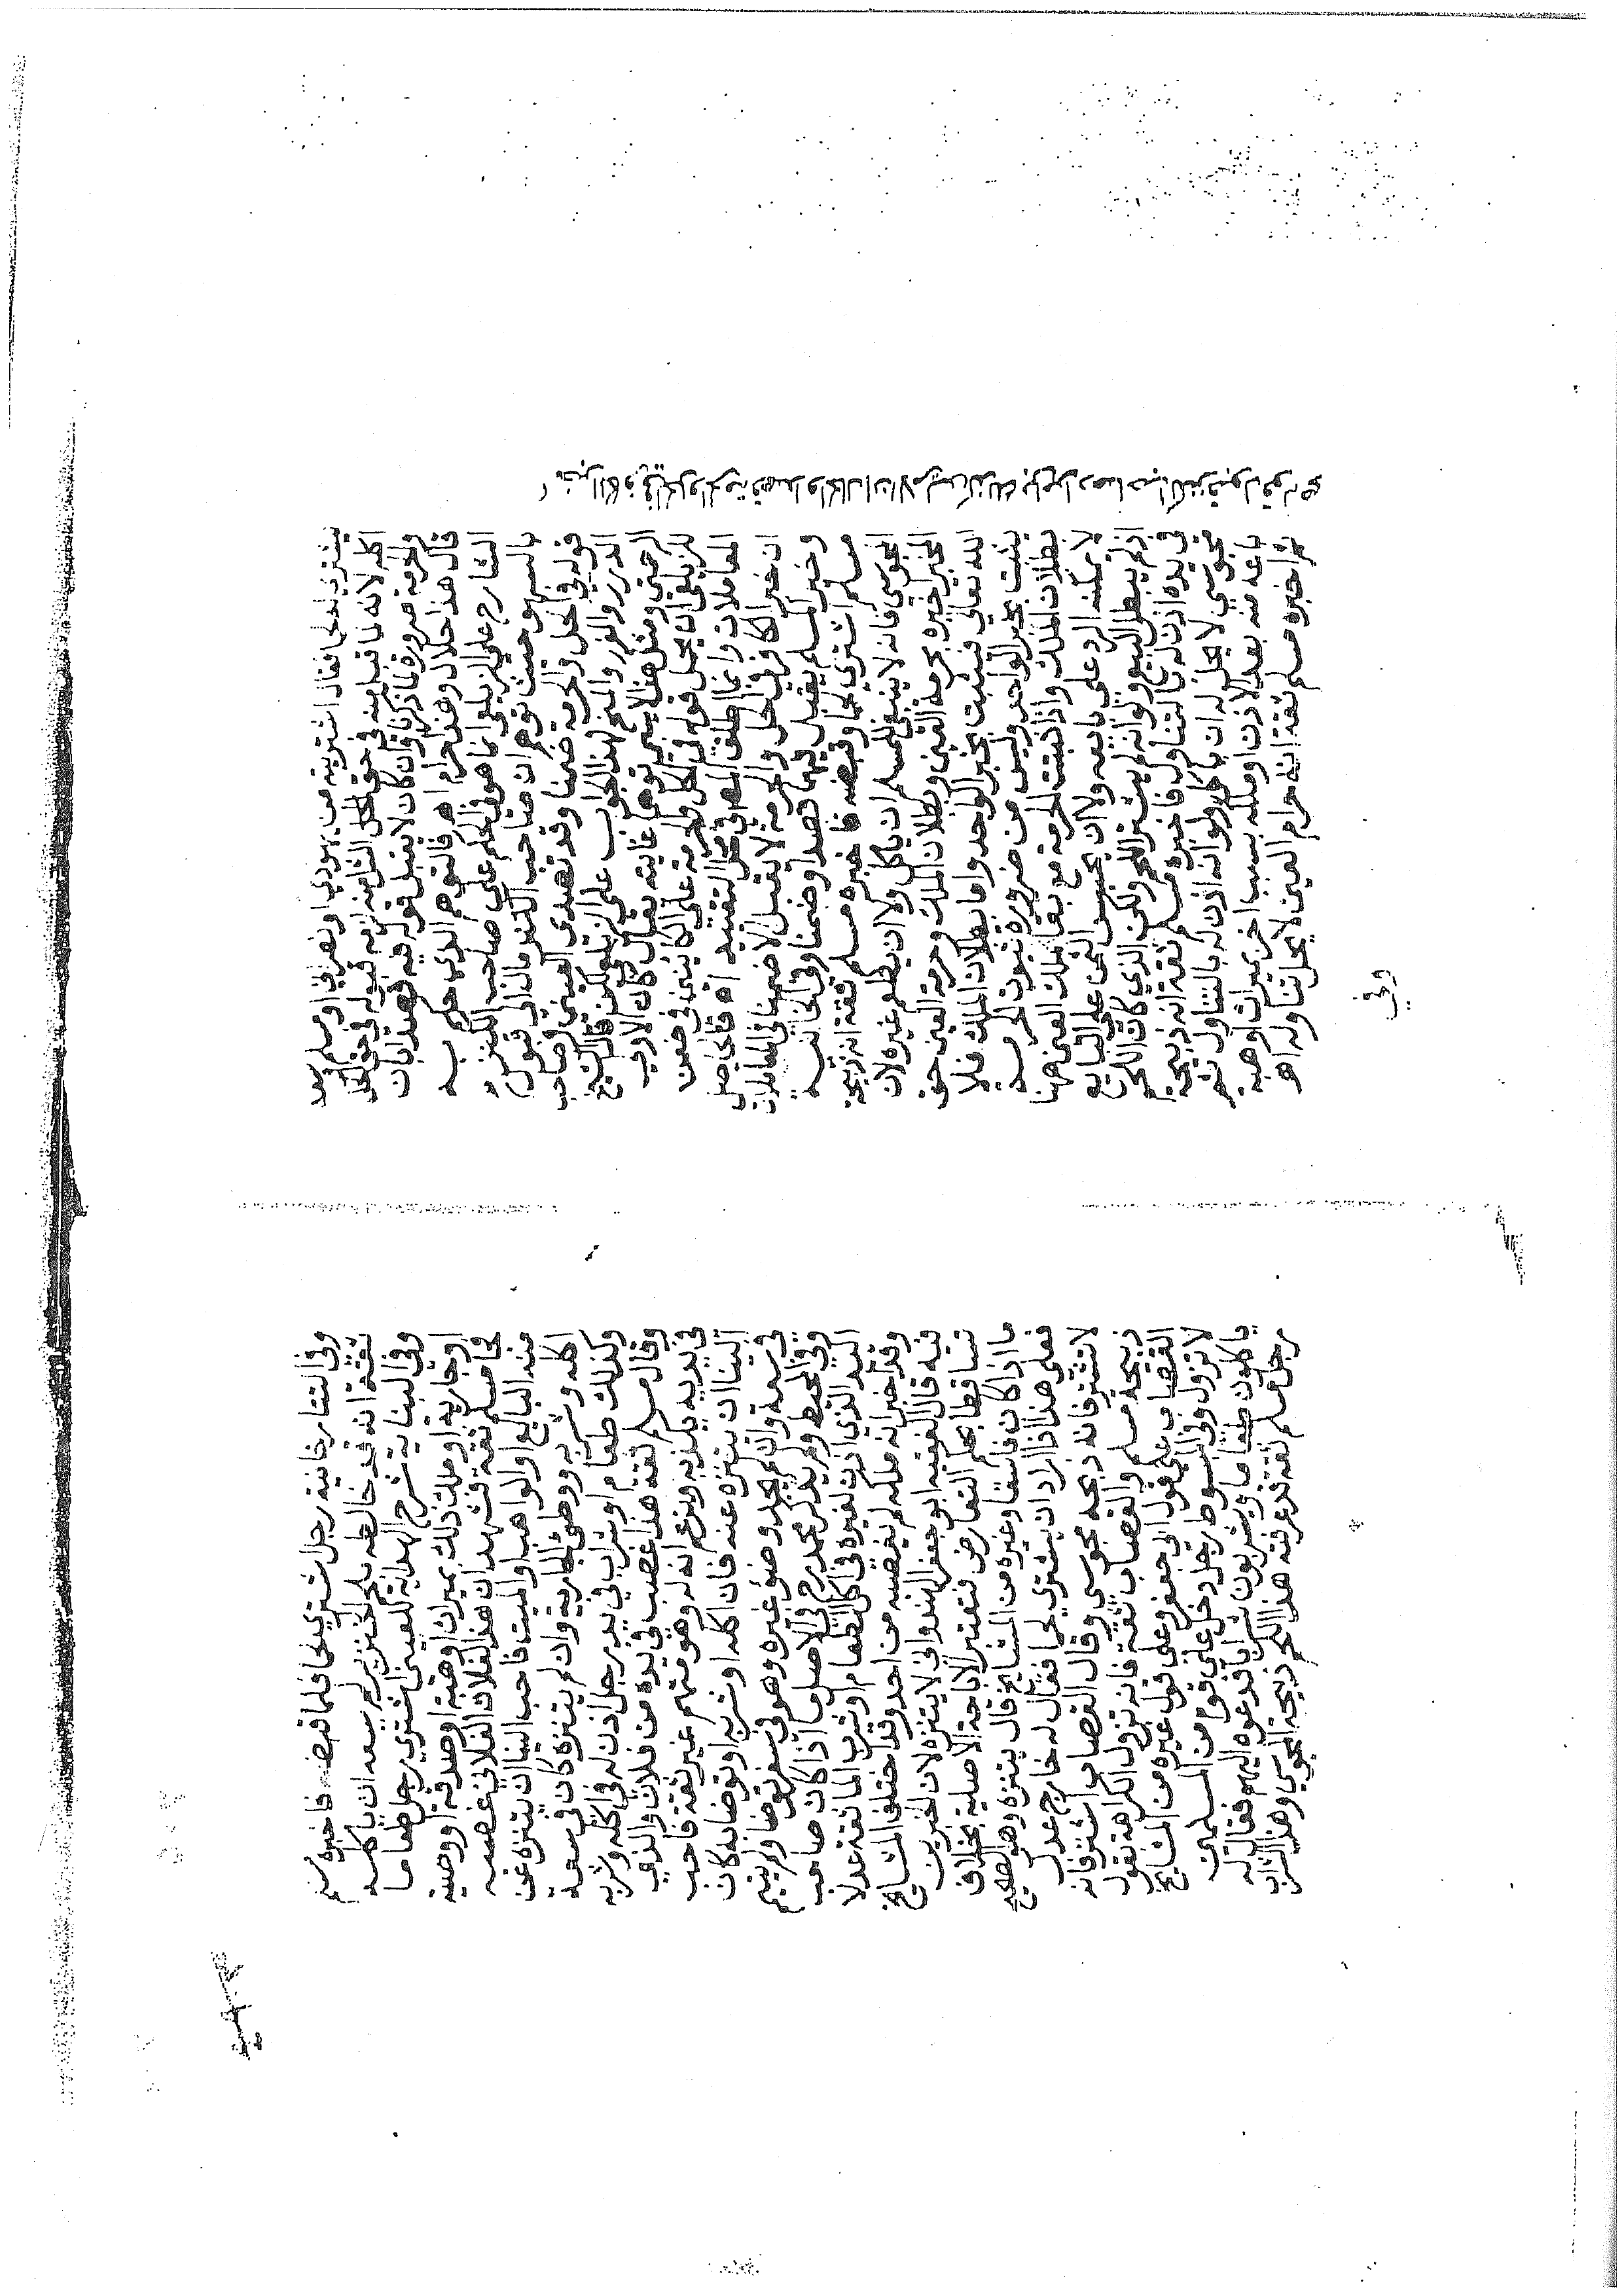 يشتريه لحما فقال اشتريته من يهودي او نصراني او مسلم وسعه
اكله لانه لما قبل منه في حق الحل الشراء منه لزم قبوله في حق الحل
والحرمة ضرورة لما ذكرنا وان كان لا يقبل قوله فيه قصدا بان
قال هذا حلال وهذا حرام اهـ فالتوهم الذي حكم به
الشارح على الزيلعي انما هو في الحكم على صاحب الكنز
بالسهو حيث توهم ان صاحب الكنز مال الى قبول
قوله في الحل والحرمة ضمنا وقد تصدى العيني وصاحب
الدرر والغرر والمنح لهذا الجواب على الزيلعي لكن قال الشيخ
الرحمتي ومثل هذا لا ينبي توهما غايته يقال كان الاولى
للزيلعي ان يحمل قوله في الحل والحرمة على الكائنين في ضمن
المعاملات وانما اطلق المص في محل التقييد اهـ فالحاصل
ان خبر الكافر في الحل والحرمة لا يقبل الا ضمنا في المعاملات
وخبر المسلم يقبل فيهما قصدا وضمنا وفي الخانية
مسلم اشترى لحما وقبضه فاخبره مسلم ثقة انه ذبيحة
المجوسي فانه لا ينبغي للمسلم ان ياكل ولا ان يطعم غيره لان
المخبر اخبره بحرمة العين وبطلان الملك وحرمة العين حق
الله تعالى فتثبت بخبر الواحد واما بطلان الملك فلا
يثبت بخبر الواحد وليس من ضرورة ثبوت الحرمة
بطلان الملك واذا ثبتت الحرمة مع بقاء ملك العين هنا
لا يمكنه الرد على بائعه ولا ان يحبس الثمن على البايع
اذ لم يبطل البيع ولو انه لم يشتر اللحم ولكن الذي كان اللحم
في يده اذن له بالتناول فاخبره مسلم ثقة انه ذبيحة
مجوسي لا يحل له ان ياكل ولو انه اذن له بالتناول ثم
باعه منه بعد الاذن او ملكه بسبب اخر بميراث او هبة
ثم اخبره مسلم ثقة انه حرام العين لا يحل تناوله اهـ
وفي
وفي التتارخانية رجل اشترى لحما فلما قبضه فاخبره مسلم
ثقة انه قد خالطه لحم الخنزير لم يسعه ان ياكله
وفي البناية شرح الهداية للعيني اشترى رجل طعاما
او جارية او ملك ذلك بميراث او هبة او صدقة او وصية
فجا مسلم ثقة فشهد ان هذا لفلان الفلاني غصبه
منه البايع او الواهب او الميت فاحب الينا ان يتنزه عن
اكله وشربه ووطئ الجارية وان لم يتنزه كان في سعة
وكذلك طعام او شراب في يد رجل اذن له في اكله وشربه
وقال مسلم ثقة هذا غصب في يده من فلان والذي
في يديه يكذبه ويزعم انه له وهو متهم غير ثقة فاحب
الينا ان يتنزه عنه فان اكله او شربه او توضا به كان
في سعة وان لم يجد وضوء غيره وهو في سفر توضا ولم يتيمم
وفي المحيط ولم يذكر محمد رح في الاصل ما اذا كان صاحب
اليد الذي اذن لغيره في اكل الطعام وشرب الما ثقة عدلا
وقد اخبر انه ملكه لم يغصبه من احد وقد اختلف المشايخ
فيه قال الفقيه ابو جعفر الهندواني لا يتنزه لان الخبرين
تساقطا بحكم التعارض فتعتبر الاباحة الاصلية بخلاف
ما اذا كان فاسقا وغيره من المشايخ قال يتنزه وهو الصحيح
فعلى هذا اذا اراد ان يشتري لحما فقال له خارج عدل
لا تشتر فانه ذبحه مجوسي وقال القصاب اشتر فانه
ذبيحة مسلم والقصاب ثقة فانه تزول الكراهة بقول
القصاب على قول ابي جعفر وعلى قول غيره من المشايخ
لا تزول وفي المبسوط رجل دخل على قوم من المسلمين
ياكلون طعاما ويشربون شرابا فدعوه اليهم فقال له
رجل مسلم ثقة قد عرفته هذا اللحم ذبيحة المجوسي وهذا الشراب